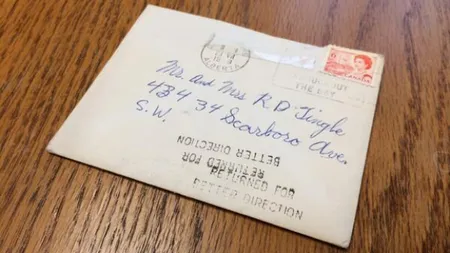 ALBERTA
THE POST
Mr. and Mrs R D Tingle
434 34 Scarboro Ave.
S.W.
BETTER DIRECTION
RETURNED FOR
RETURNED FOR
BETTER DIRECTION